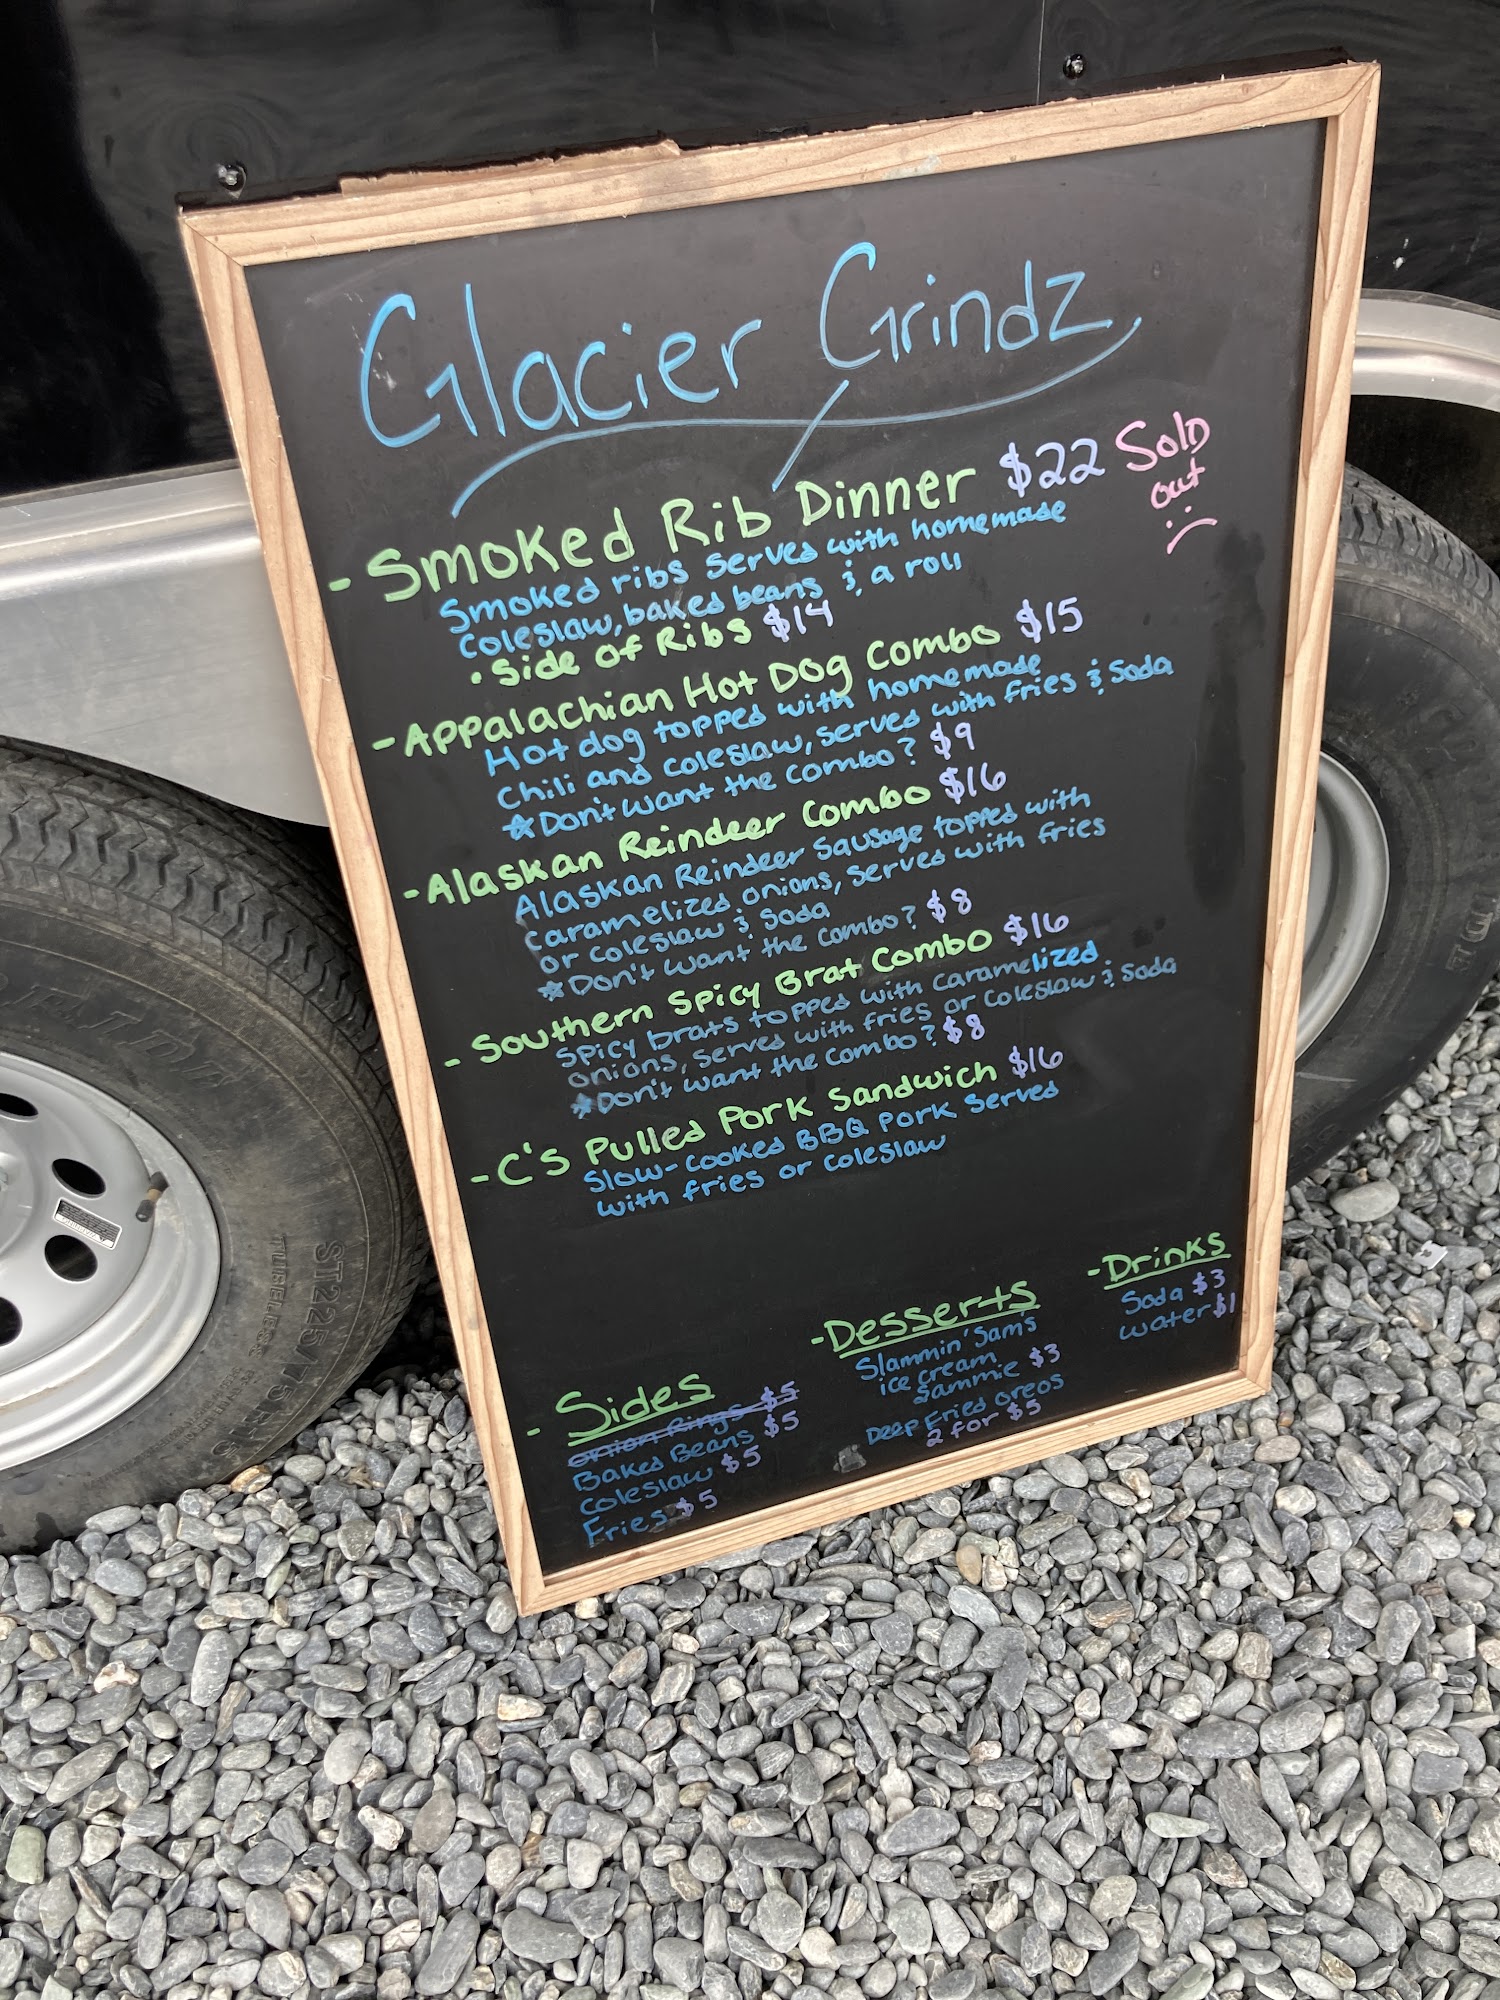 Glacier Grindz
- Smoked Rib Dinner $22 Sold out :(
Smoked ribs served with homemade
coleslaw, baked beans & a roll
• Side of Ribs $14
- Appalachian Hot Dog Combo $15
Hot dog topped with homemade
chili and coleslaw, served with fries & soda
* Don't want the combo? $9
- Alaskan Reindeer Combo $16
Alaskan Reindeer Sausage topped with
caramelized onions, served with fries
or coleslaw & soda
* Don't want the combo? $8
- Southern Spicy Brat Combo $16
Spicy brats topped with caramelized
onions, served with fries or coleslaw & soda
* Don't want the combo? $8
- C's Pulled Pork Sandwich $16
Slow-cooked BBQ pork served
with fries or coleslaw
- Sides
Onion Rings $5
Baked Beans $5
Coleslaw $5
Fries $5
- Desserts
Slammin' Sam's
ice cream
Sammie $3
Deep Fried Oreos
2 for $5
- Drinks
Soda $3
Water $1
ST225/75R15
TUBELESS